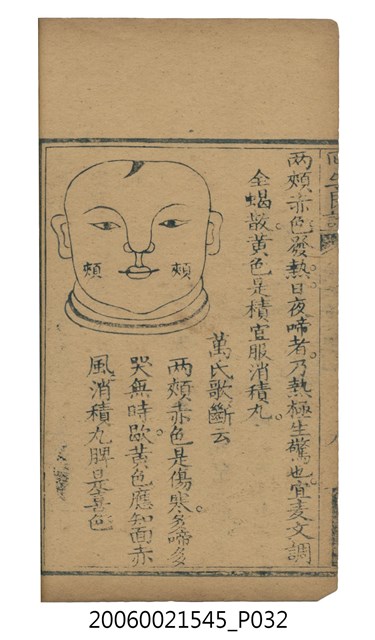 两頰赤色發熱日夜啼者乃熱極生驚也宜麦文調
全蝎散黃色是積宜服消積丸
萬氏歌斷云
两頰赤色是傷寒多啼多
哭無時歇黃色應知面赤
風消積丸脾
頰
頰
20060021545_P032